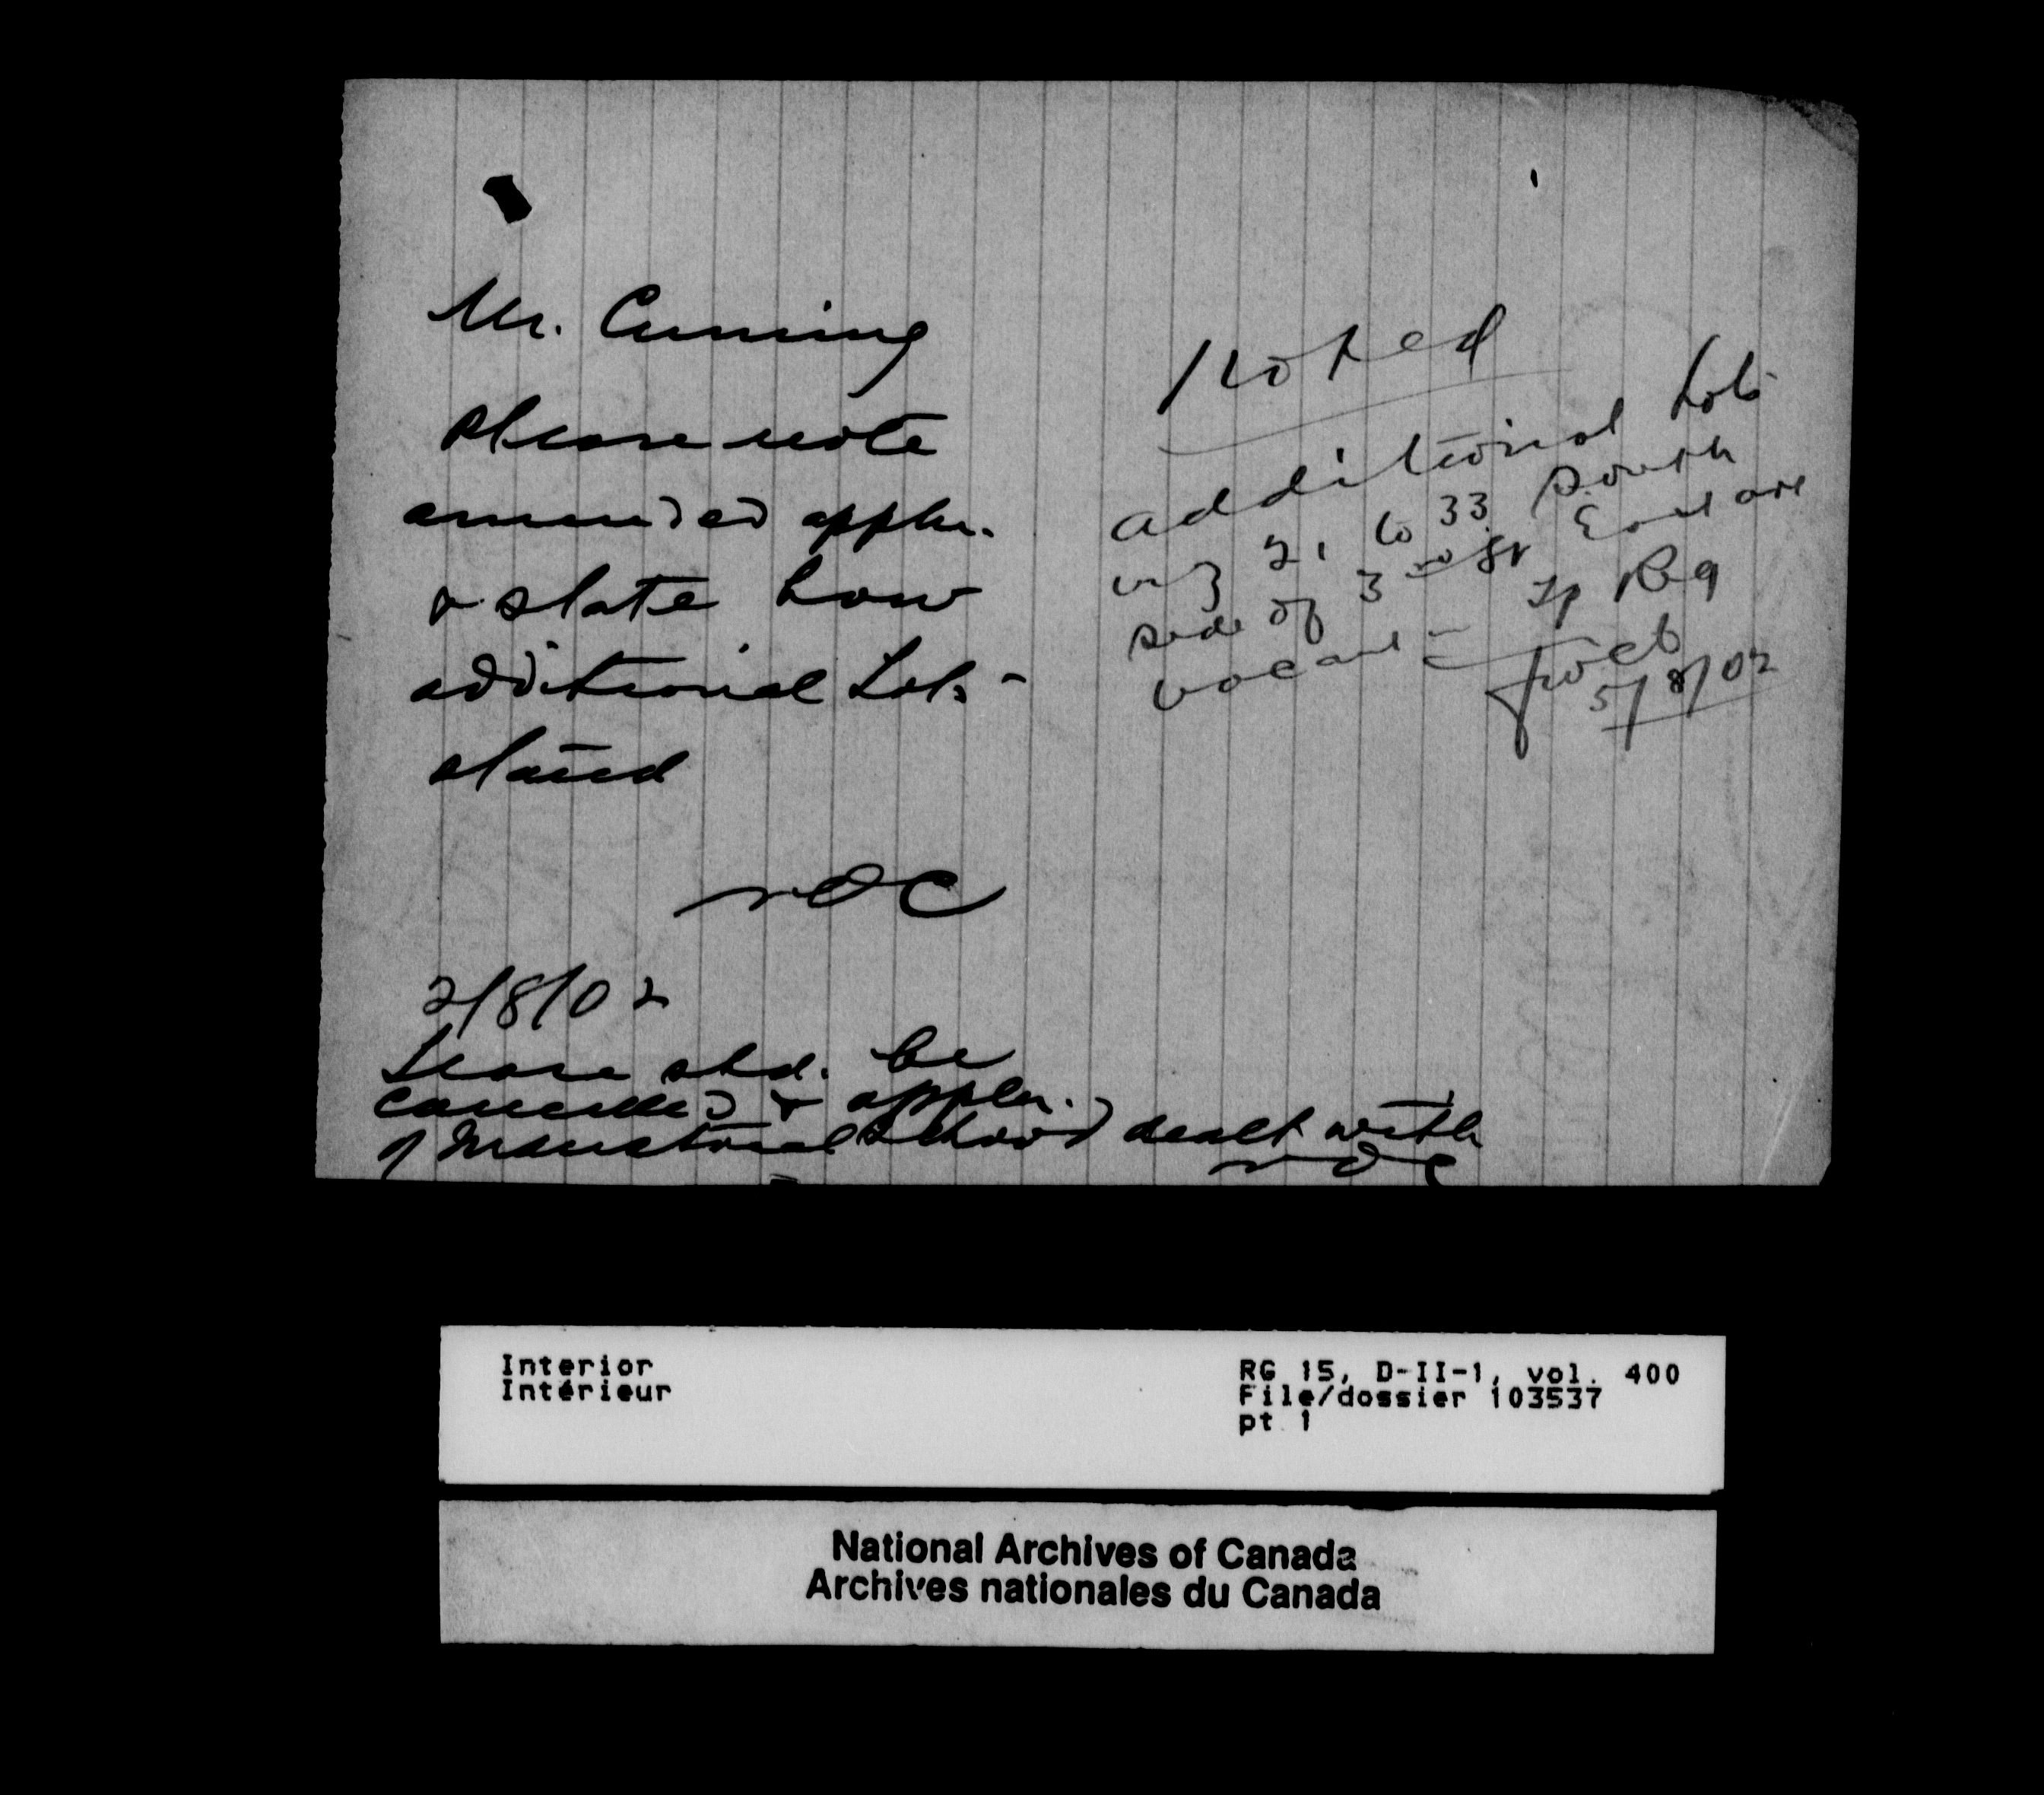 Mr. Cuming
Please note
amended appln.
& state how
additional Lots
stand
2/8/02
Lease shd. be
cancelled & appln.
of Industrial School dealt with
Noted
additional Lots
viz 21 to 33 South
side of 3rd St East are
vacant - Tp Reg
5/8/02
Interior
Intérieur
RG 15, D-II-1, vol. 400
File/dossier 103537
pt 1
National Archives of Canada
Archives nationales du Canada